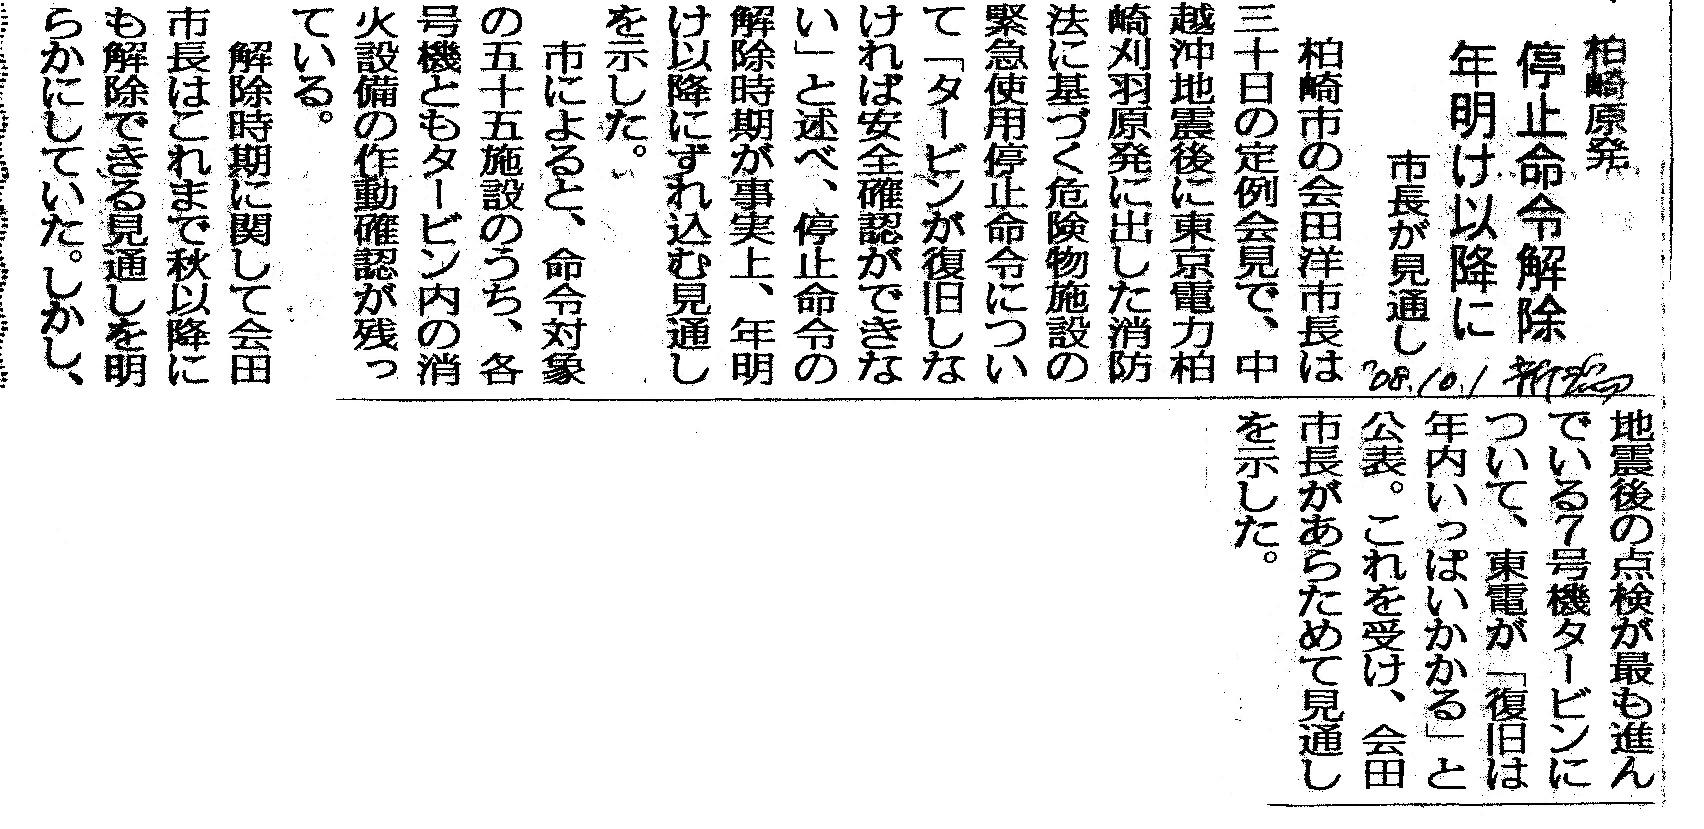 柏崎原発
停止命令解除
年明け以降に
市長が見通し
'08.10.1 新潟
柏崎市の会田洋市長は
三十日の定例会見で、中
越沖地震後に東京電力柏
崎刈羽原発に出した消防
法に基づく危険物施設の
緊急使用停止命令につい
て「タービンが復旧しな
ければ安全確認ができな
い」と述べ、停止命令の
解除時期が事実上、年明
け以降にずれ込む見通し
を示した。
市によると、命令対象
の五十五施設のうち、各
号機ともタービン内の消
火設備の作動確認が残っ
ている。
解除時期に関して会田
市長はこれまで秋以降に
も解除できる見通しを明
らかにしていた。しかし、
地震後の点検が最も進ん
でいる7号機タービンに
ついて、東電が「復旧は
年内いっぱいかかる」と
公表。これを受け、会田
市長があらためて見通し
を示した。